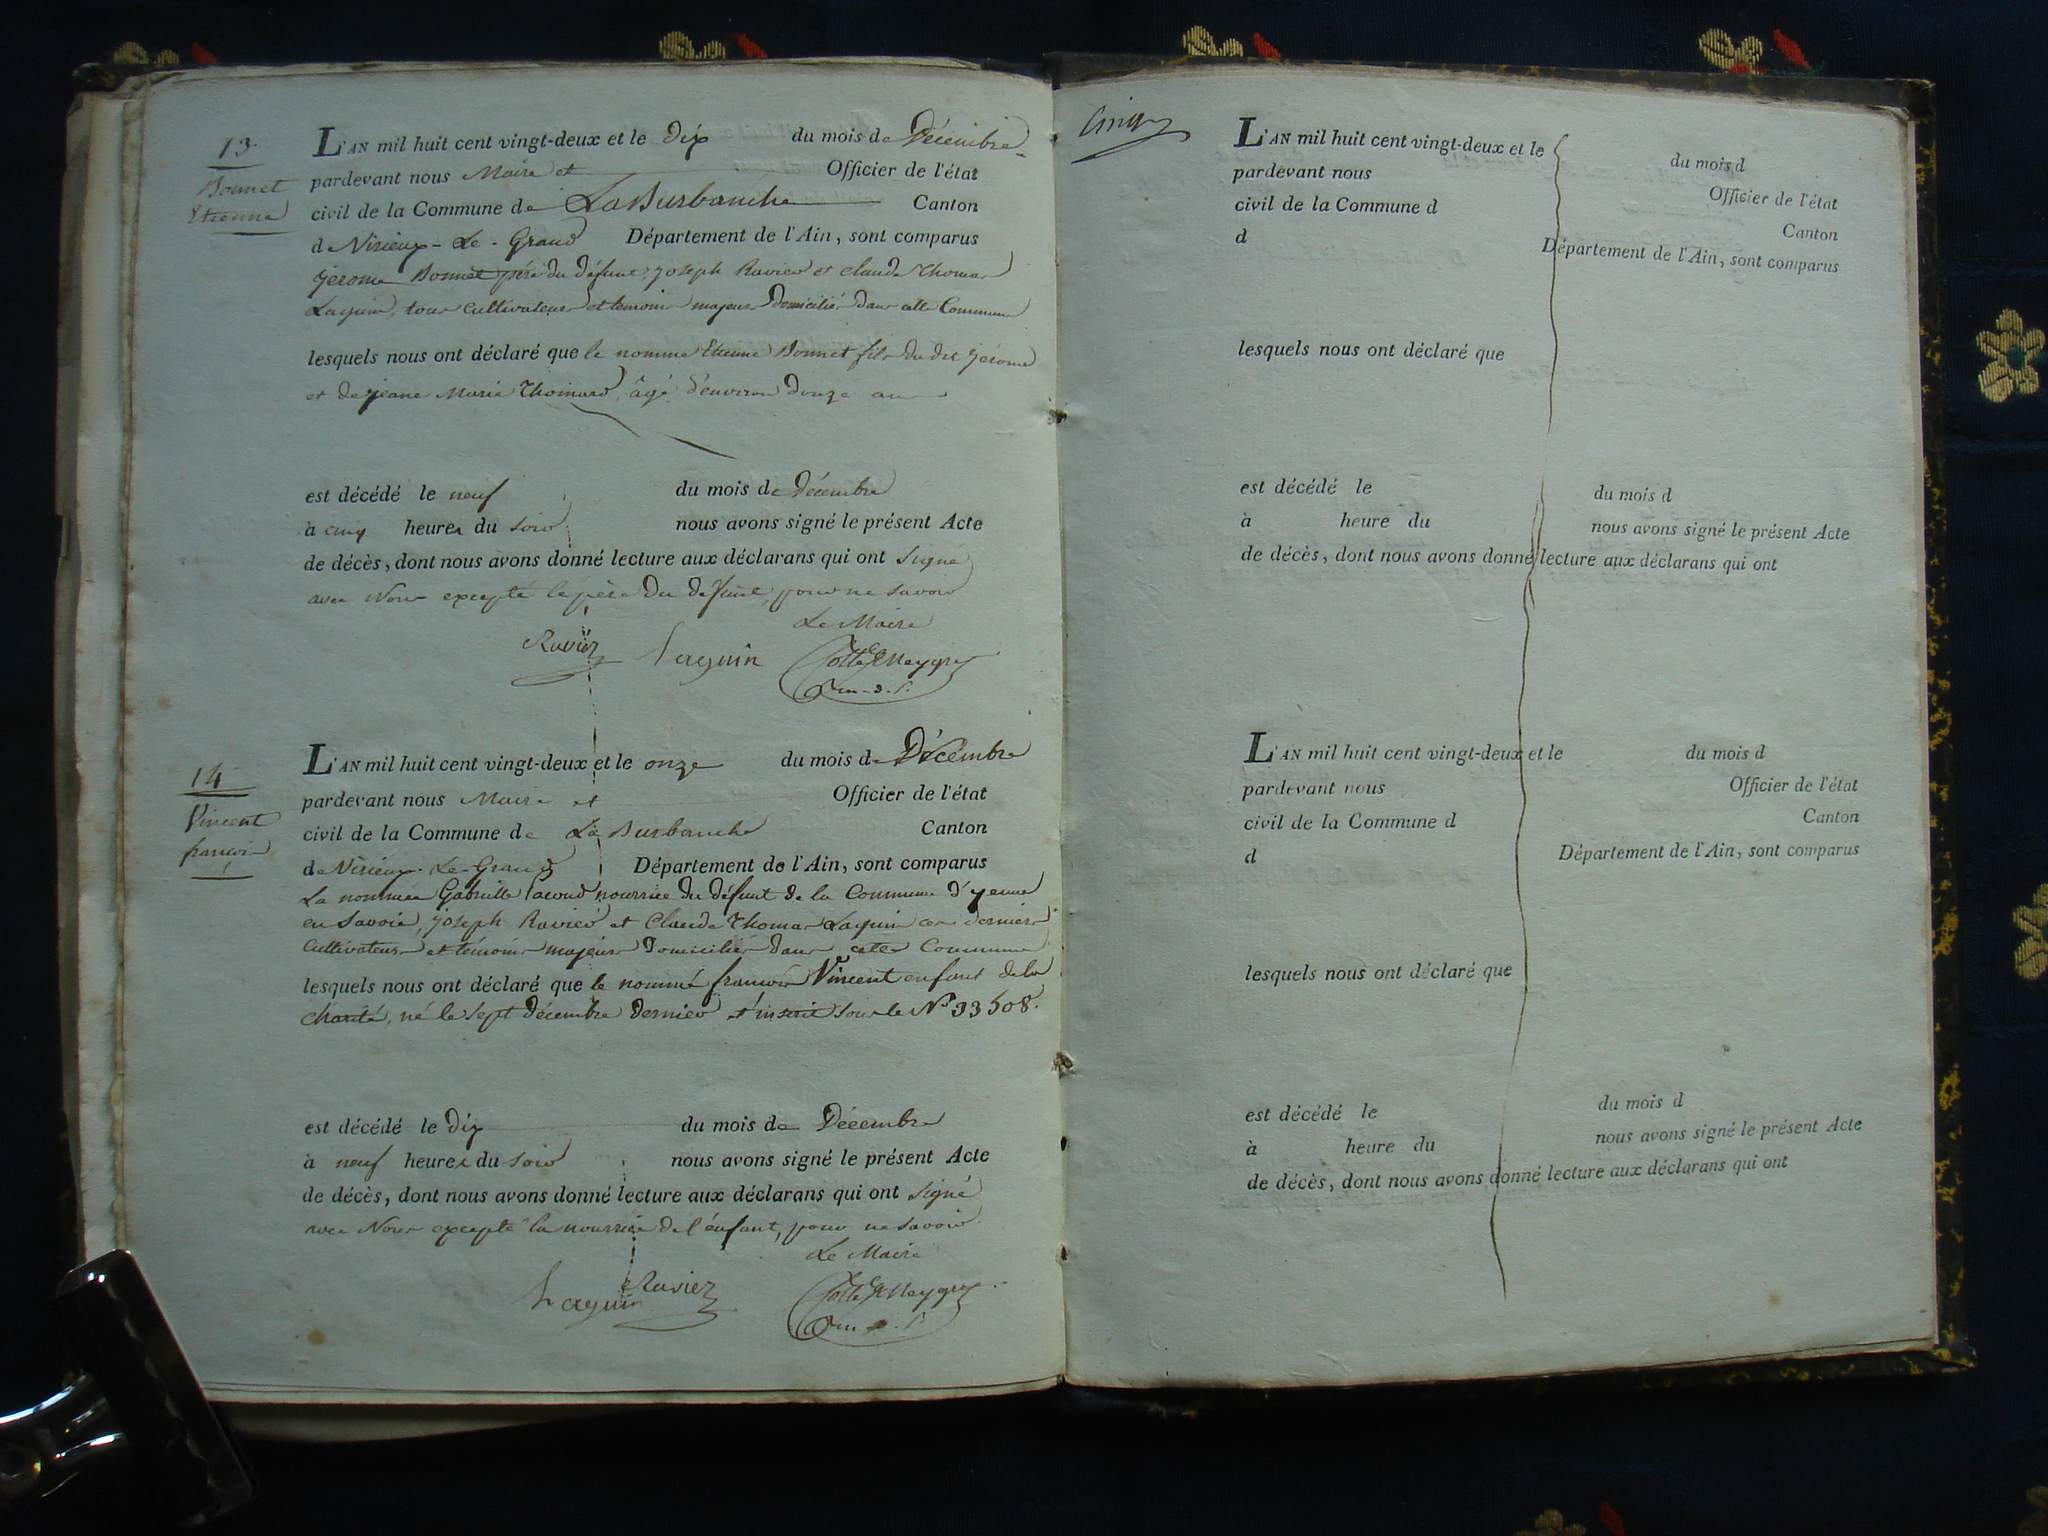 13.
Bonnet
Etienne
L'AN mil huit cent vingt-deux et le dix du mois de Décembre
pardevant nous Maire et Officier de l'état
civil de la Commune de La Burbanche Canton
de Virieux-Le-Grand Département de l'Ain, sont comparus
jerome Bonnet père du défunt, joseph Ravier et claude Thomas
Laguin, tous cultivateurs et temoins majeurs Domiciliés dans cette Commune
lesquels nous ont déclaré que le nommé Etienne Bonnet fils du dit jérome
et de jeane Marie Thoinard, âgé d'environ douze ans
est décédé le neuf du mois de Décembre
à cinq heures du soir nous avons signé le présent Acte
de décès, dont nous avons donné lecture aux déclarans qui ont signé
avec Nous excepté le père du défunt, pour ne savoir
Le Maire
Ravier Laguin
14
Vincent
françois
L'AN mil huit cent vingt-deux et le onze du mois de Décembre
pardevant nous Maire et Officier de l'état
civil de la Commune de La Burbanche Canton
de Virieux-Le-Grand Département de l'Ain, sont comparus
La nommée Gabrielle nourrice du défunt de la Commune d'yenne
en Savoie, joseph Ravier et Claude Thomas Laguin ces derniers
cultivateurs et témoins majeurs Domiciliés dans cette Commune
lesquels nous ont déclaré que le nommé françois Vincent enfant de la
charité, né le sept décembre dernier et inscrit sous le N° 33508.
est décédé le dix du mois de Décembre
à neuf heures du soir nous avons signé le présent Acte
de décès, dont nous avons donné lecture aux déclarans qui ont signé
avec Nous excepté la nourrice de l'énfant, pour ne savoir.
Le Maire
Laguin Ravier
L'AN mil huit cent vingt-deux et le du mois d
pardevant nous Officier de l'état
civil de la Commune d Canton
d Département de l'Ain, sont comparus
lesquels nous ont déclaré que
est décédé le du mois d
à heure du nous avons signé le présent Acte
de décès, dont nous avons donné lecture aux déclarans qui ont
L'AN mil huit cent vingt-deux et le du mois d
pardevant nous Officier de l'état
civil de la Commune d Canton
d Département de l'Ain, sont comparus
lesquels nous ont déclaré que
est décédé le du mois d
à heure du nous avons signé le présent Acte
de décès, dont nous avons donné lecture aux déclarans qui ont